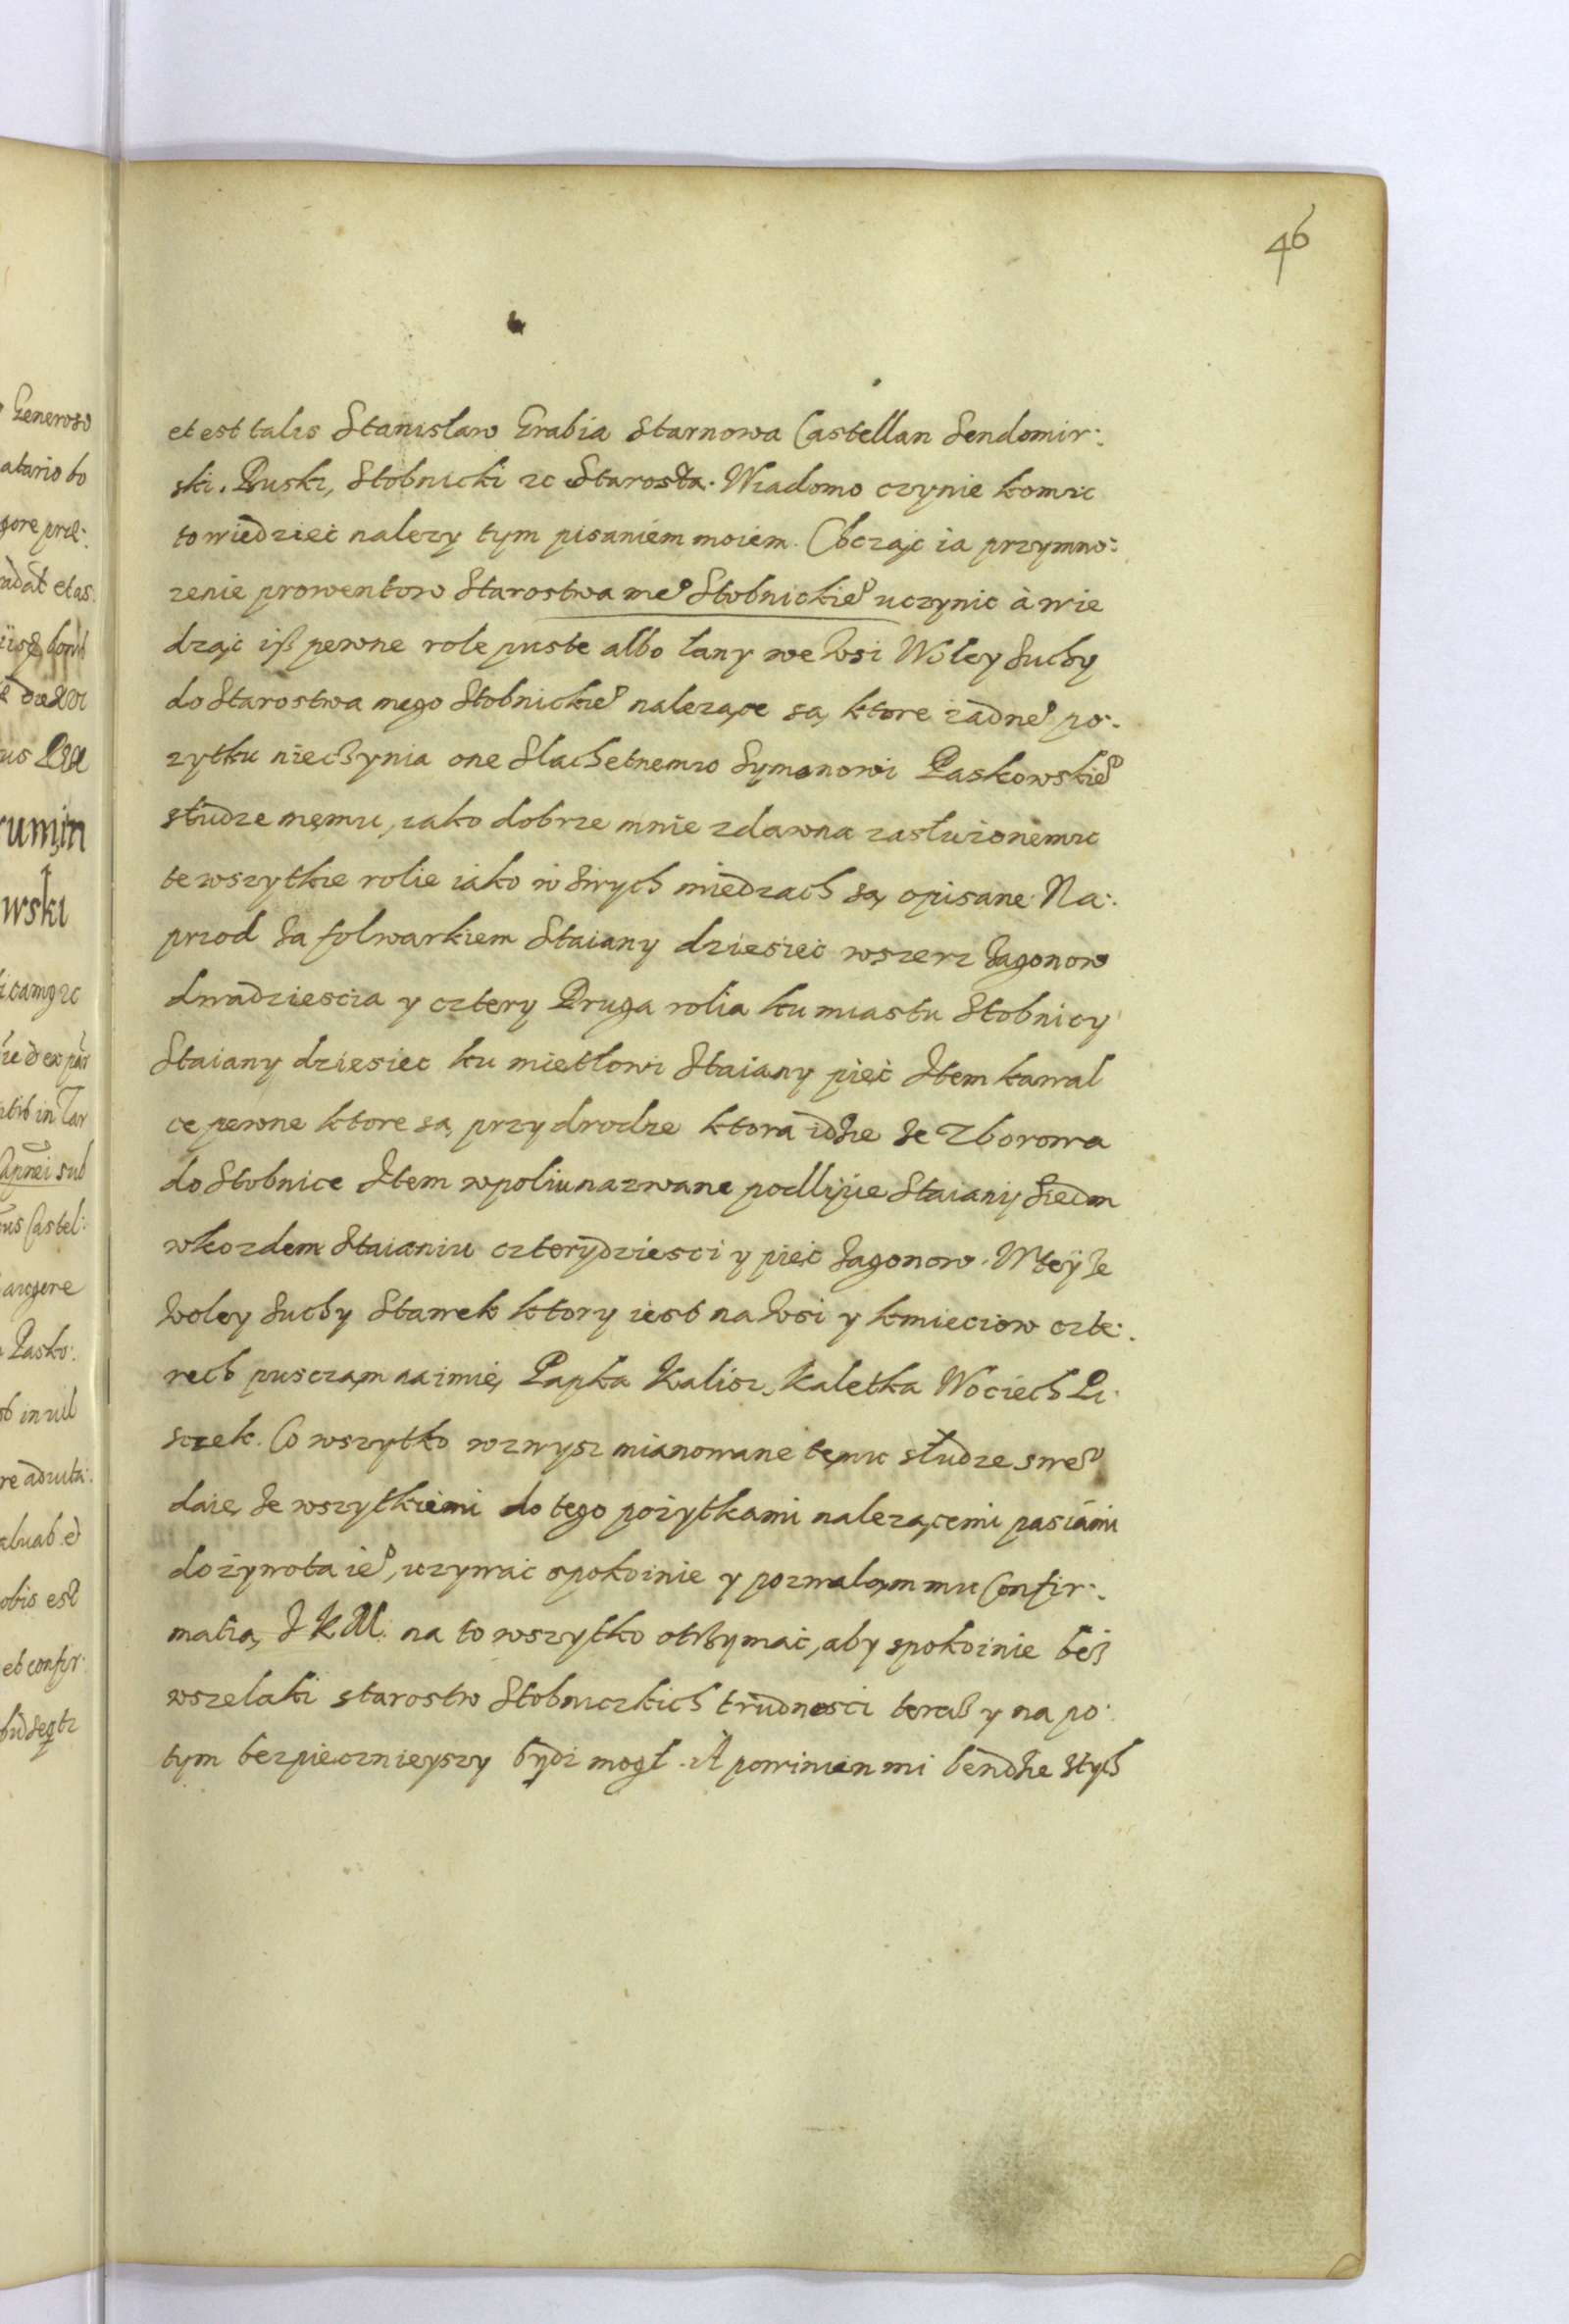 46
et est talis Stanisław Grabia Starnowa Castellan Sendomir:
ski. Buski, Stobnicki zc Starosta. Wiadomo czynie komu
to wiedzieć nalezy tym pisaniem moiem. Chcząc ia przymno:
zenie prowentow Starostwa meº Stobnickieº uczynic à wie
dząc iß pewne role puste albo łany we wsi Woley Suchy
do Starostwa mego Stobnickieº nalezące są, ktore żadneº po:
zytku nieczynia one Slachetnemu Symonowi Paskowskieº
słudze memu, iako dobrze mnie zdawna zasłużonemu
te wszytkie rolie iako w swych miedzach są, opisane. Na:
przod Za folwarkiem Staiany dziesieć wszerz Zagonow
dwadziescia y cztery Druga rolia ku miastu Stobnicy
Staiany dziesiec ku mietłowi Staiany pieć Item kawal
ce pewne ktore są, przy drodze ktora idzie Ze Zborowa
do Stobnice Item w poliu nazwane podlipie Staiany Siedm
w kozdem Staianiu czterydziesci y pieć Zagonow. W teyże
Woley Suchy Stawek ktory iest na wsi y kmieciow czte:
rech pusczam na imię, Papka Kalisz, Kaletka Wociech Li:
szek. Co wszytko wzwysz mianowane temu słudze sweº
daię, Ze wszytkiemi do tego pożytkami nalezącemi pasiámi
do żywota ieº, uzywać spokoinie y pozwalam mu Confir:
matią, J K M. na to wszytko otrzymać, aby spokoinie beß
wszelaki starostw Stobniczkich trudnosci teraß y na po:
tym bezpiecznieyszy bydz mogł. A powinien mi bendzie Stych